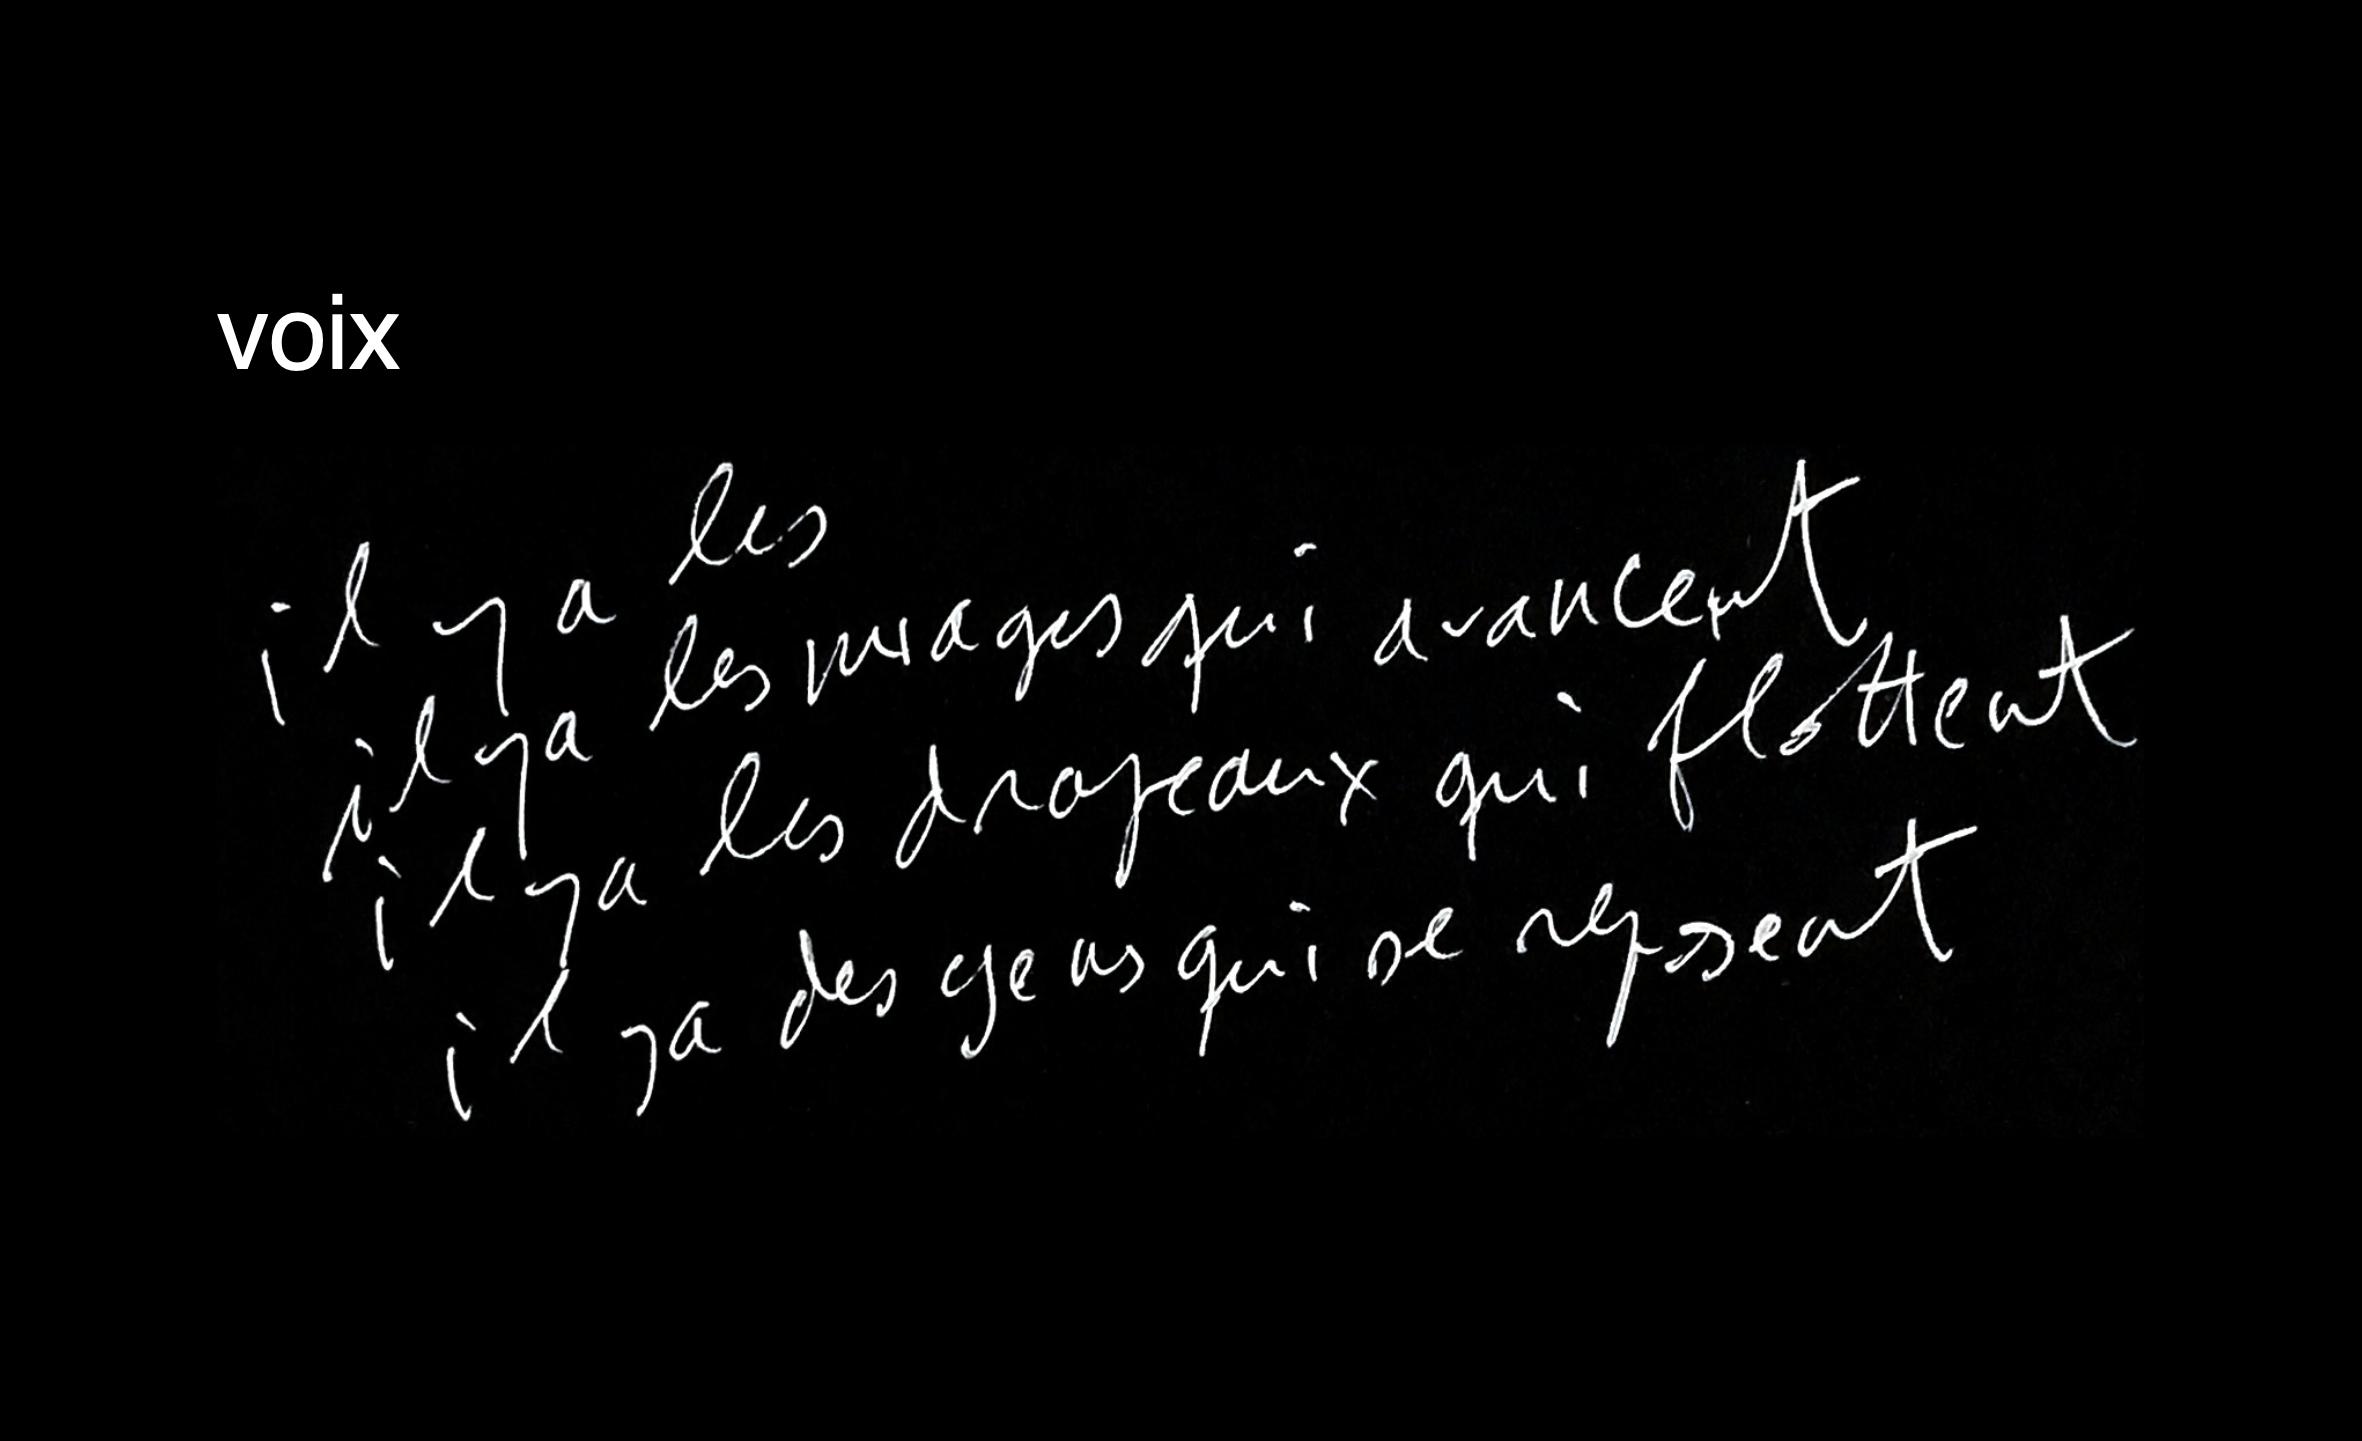 voix
il y a les
il y a les nuages qui avancent
il y a les drapeaux qui flottent
il y a des gens qui se reposent